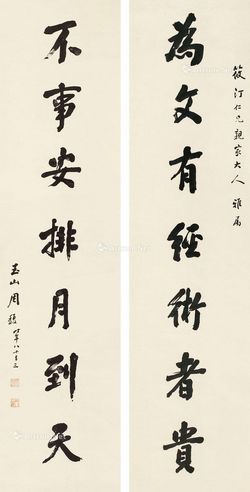 筱汀仁兄親家大人 雅属
為文有經術者貴
不事安排月到天
玉山周馥時年八十有三